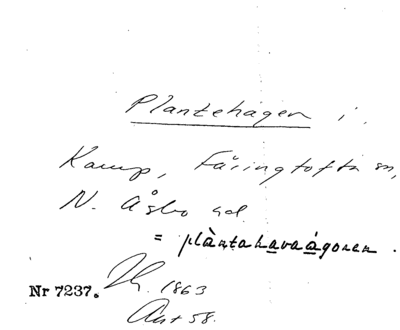 Plantehagen i.
Kamp, Färingtofta sn,
N. Åsbo hd.
= plàntahavaágoren.
Nr 7237. 1863
Ant 58.